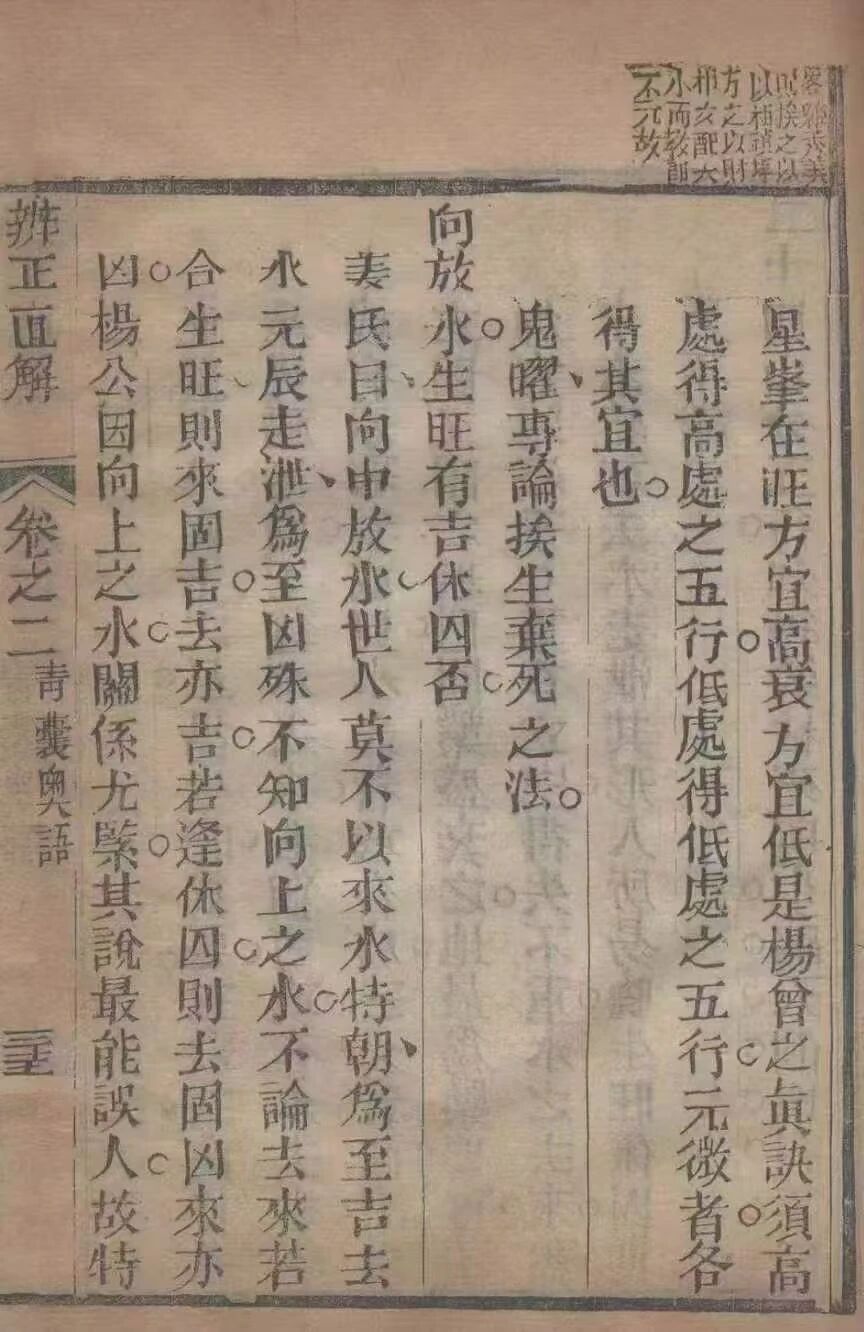 星峯在旺方宜高衰方宜低是楊曾之眞訣須高
處得高處之五行低處得低處之五行元微者各
得其宜也
鬼曜專論挨生棄死之法
向放水生旺有吉休囚否
姜氏曰向中放水世人莫不以來水特朝爲至吉去
水元辰走泄爲至凶殊不知向上之水不論去來若
合生旺則來固吉去亦吉若逢休囚則去固凶來亦
凶楊公因向上之水關係尤緊其說最能誤人故特
辨正直解
卷之二
青囊奧語
方之以財
不元故